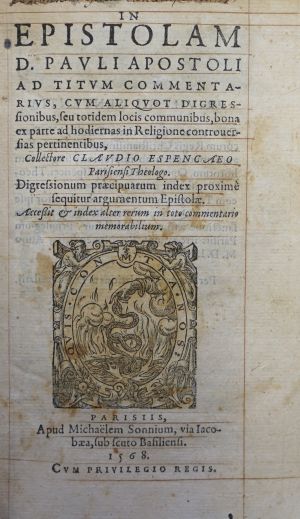 IN
EPISTOLAM
D. PAVLI APOSTOLI
AD TITVM COMMENTA-
RIVS, CVM ALIQVOT DIGRES-
sionibus, seu totidem locis communibus, bona
ex parte ad hodiernas in Religione controuer-
sias pertinentibus,
Collectore CLAVDIO ESPENCAEO
Parisiensi Theologo.
Digressionum præcipuarum index proximè
sequitur argumentum Epistolæ.
Accessit & index alter rerum in toto commentario
memorabilium.
QVIS CONTRA NOS
PARISIIS,
Apud Michaëlem Sonnium, via Iaco-
bæa, sub scuto Basiliensi.
1568.
CVM PRIVILEGIO REGIS.